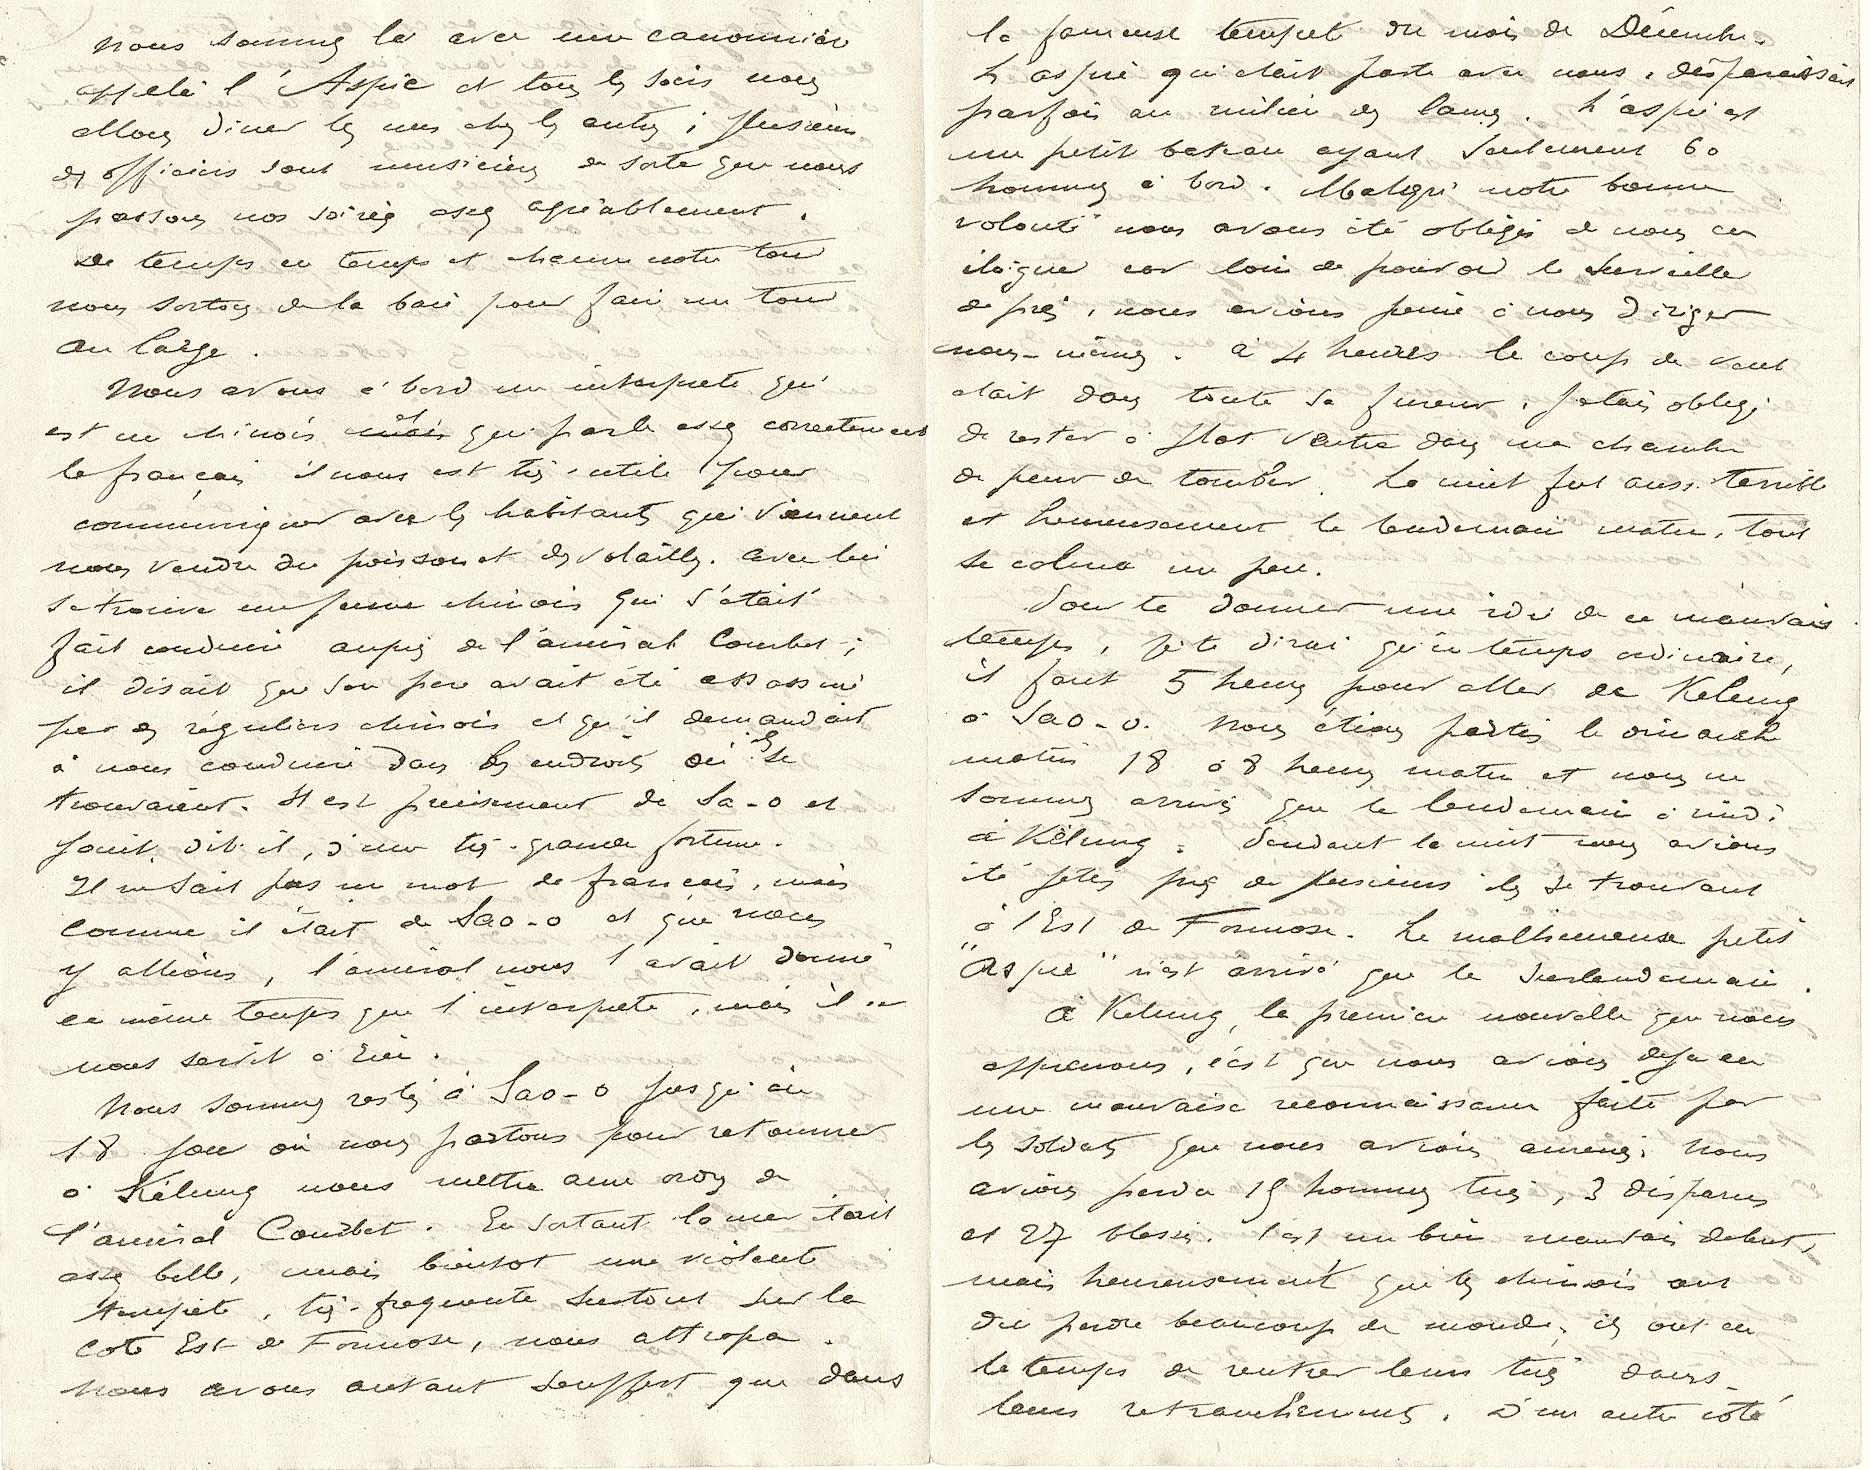 Nous sommes là avec une canonnière
appelée l'Aspic et tous les soirs nous
allons diner les uns chez les autres ; plusieurs
des officiers sont musiciens de sorte que nous
passons nos soirées assez agréablement.
De temps en temps et chacun notre tour
nous sortons de la baie pour faire un tour
au large.
Nous avons à bord un interprete qui
est un chinois et qui parle assez correctement
le français il nous est très-utile pour
communiquer avec les habitants qui viennent
nous vendre du poisson et des volailles. Avec lui
se trouve un jeune chinois qui s'était
fait conduire auprès de l'amiral Courbet ;
il disait que son père avait été assassiné
par des réguliers chinois et qu'il demandait
à nous conduire dans les endroits où ils se
trouvaient. Il est précisément de Sa-o et
jouit, dit-il, d'une très-grande fortune.
Il ne sait pas un mot de français, mais
comme il était de Sao-o et que nous
y allions, l'amiral nous l'avait donné
en même temps que l'interprete, mais il ne
nous servit à rien.
Nous sommes restés à Sao-o jusqu'au
18 jour où nous partons pour retourner
à Kélung nous mettre aux ordres de
l'amiral Courbet. En sortant la mer était
assez belle, mais bientot une violente
tempête, très-frequente surtout sur la
cote Est de Formose, nous attrapa.
Nous avons autant souffert que dans
la fameuse tempete du mois de Décembre.
L'aspic qui était parti avec nous, disparaissait
parfois au milieu des lames. L'aspic est
un petit bateau ayant seulement 60
hommes à bord. Malgré notre bonne
volonté nous avons été obligés de nous en
éloigner car loin de pouvoir le surveiller
de près, nous avions peine à nous diriger
nous-mêmes. à 4 heures le coup de vent
etait dans toute sa fureur, j'etais obligé
de rester à plat ventre dans ma chambre
de peur de tomber. La nuit fut aussi terrible
et heureusement le lendemain matin, tout
se calma un peu.
Pour te donner une idée de ce mauvais
temps, je te dirai qu'en temps ordinaire,
il faut 5 heures pour aller de Kelung
à Sao-o. Nous étions partis le dimanche
matin 18 à 8 heures matin et nous ne
sommes arrivés que le lendemain à midi
à Kélung. Pendant la nuit nous avions
été jetés près de plusieurs iles se trouvant
à l'Est de Formose. Le malheureux petit
"Aspic" n'est arrivé que le surlendemain.
à Kelung, la première nouvelle que nous
apprenons, c'est que nous avions deja eu
une mauvaise reconnaissance faite par
les soldats que nous avions amenés. Nous
avions perdu 19 hommes tués, 3 disparus
et 27 blessés. C'est un bien mauvais debut,
mais heureusement que les chinois ont
du perdre beaucoup de monde, ils ont eu
le temps de rentrer leurs tués dans
leurs retranchements. D'un autre côté